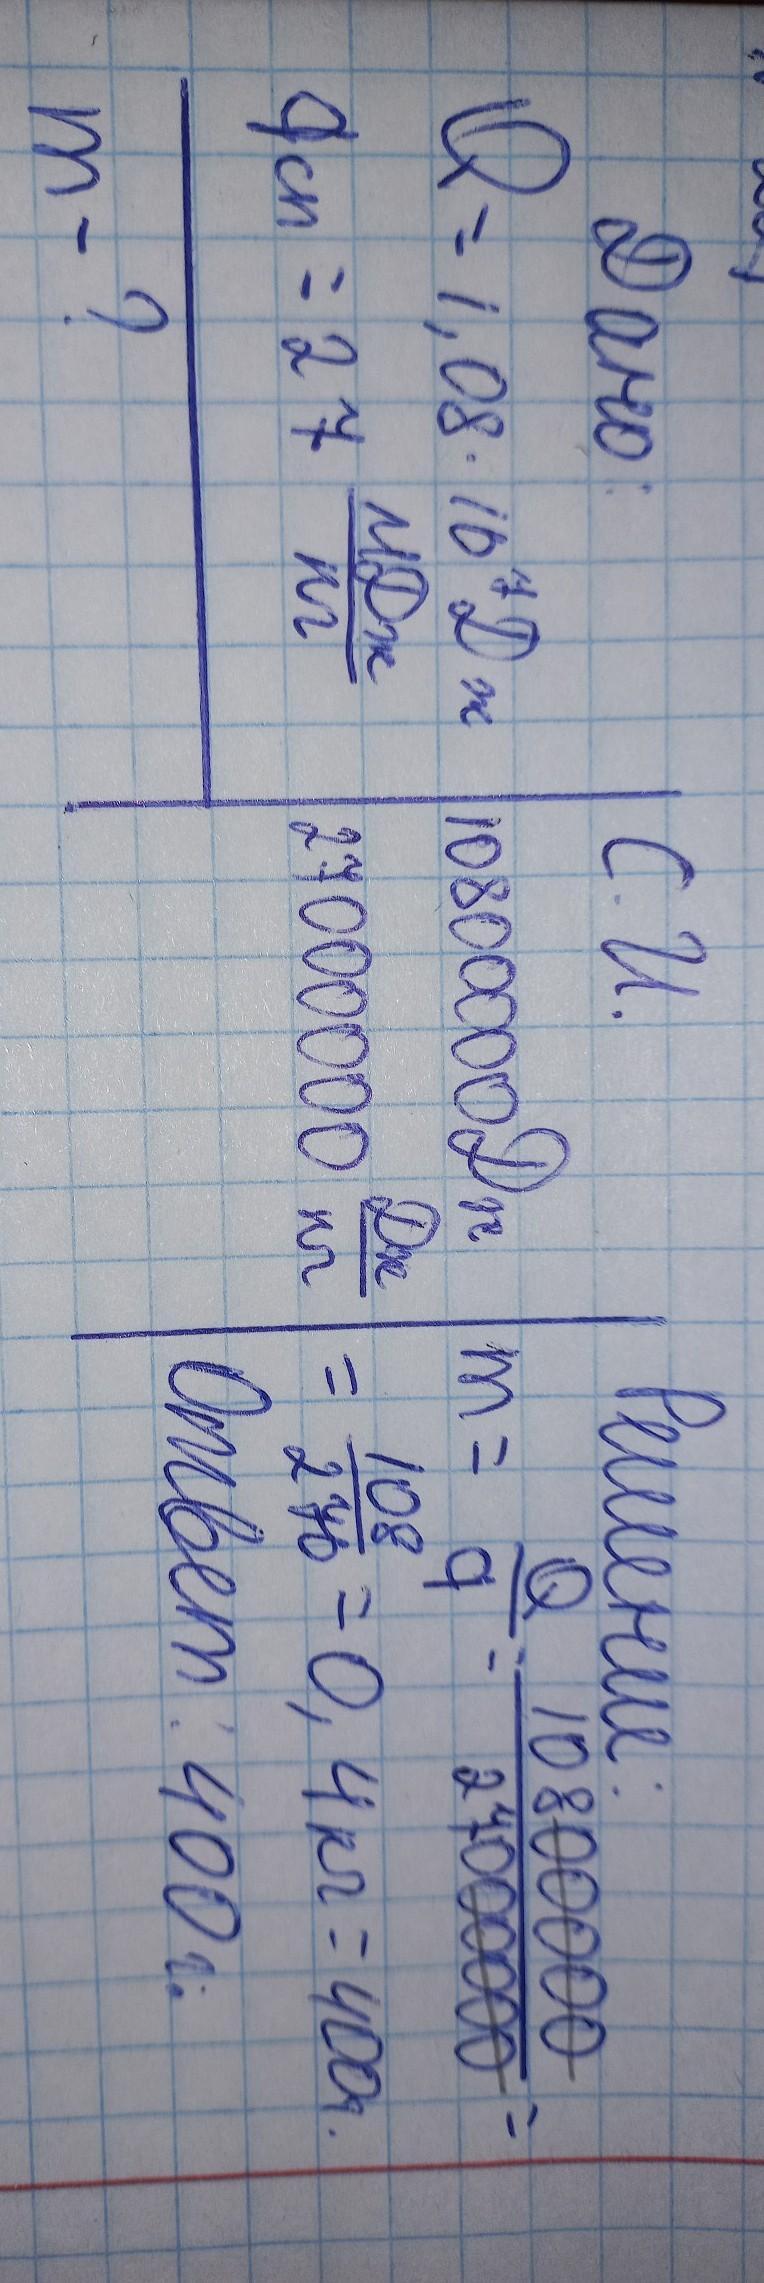 Дано:
Q = 1,08 · 10⁷ Дж
qсп = 27 МДж/кг
m - ?
С.И.
10800000 Дж
27000000 Дж/кг
Решение:
m = Q/q = 10800000/27000000 =
= 108/270 = 0,4 кг = 400 г.
Ответ: 400 г.